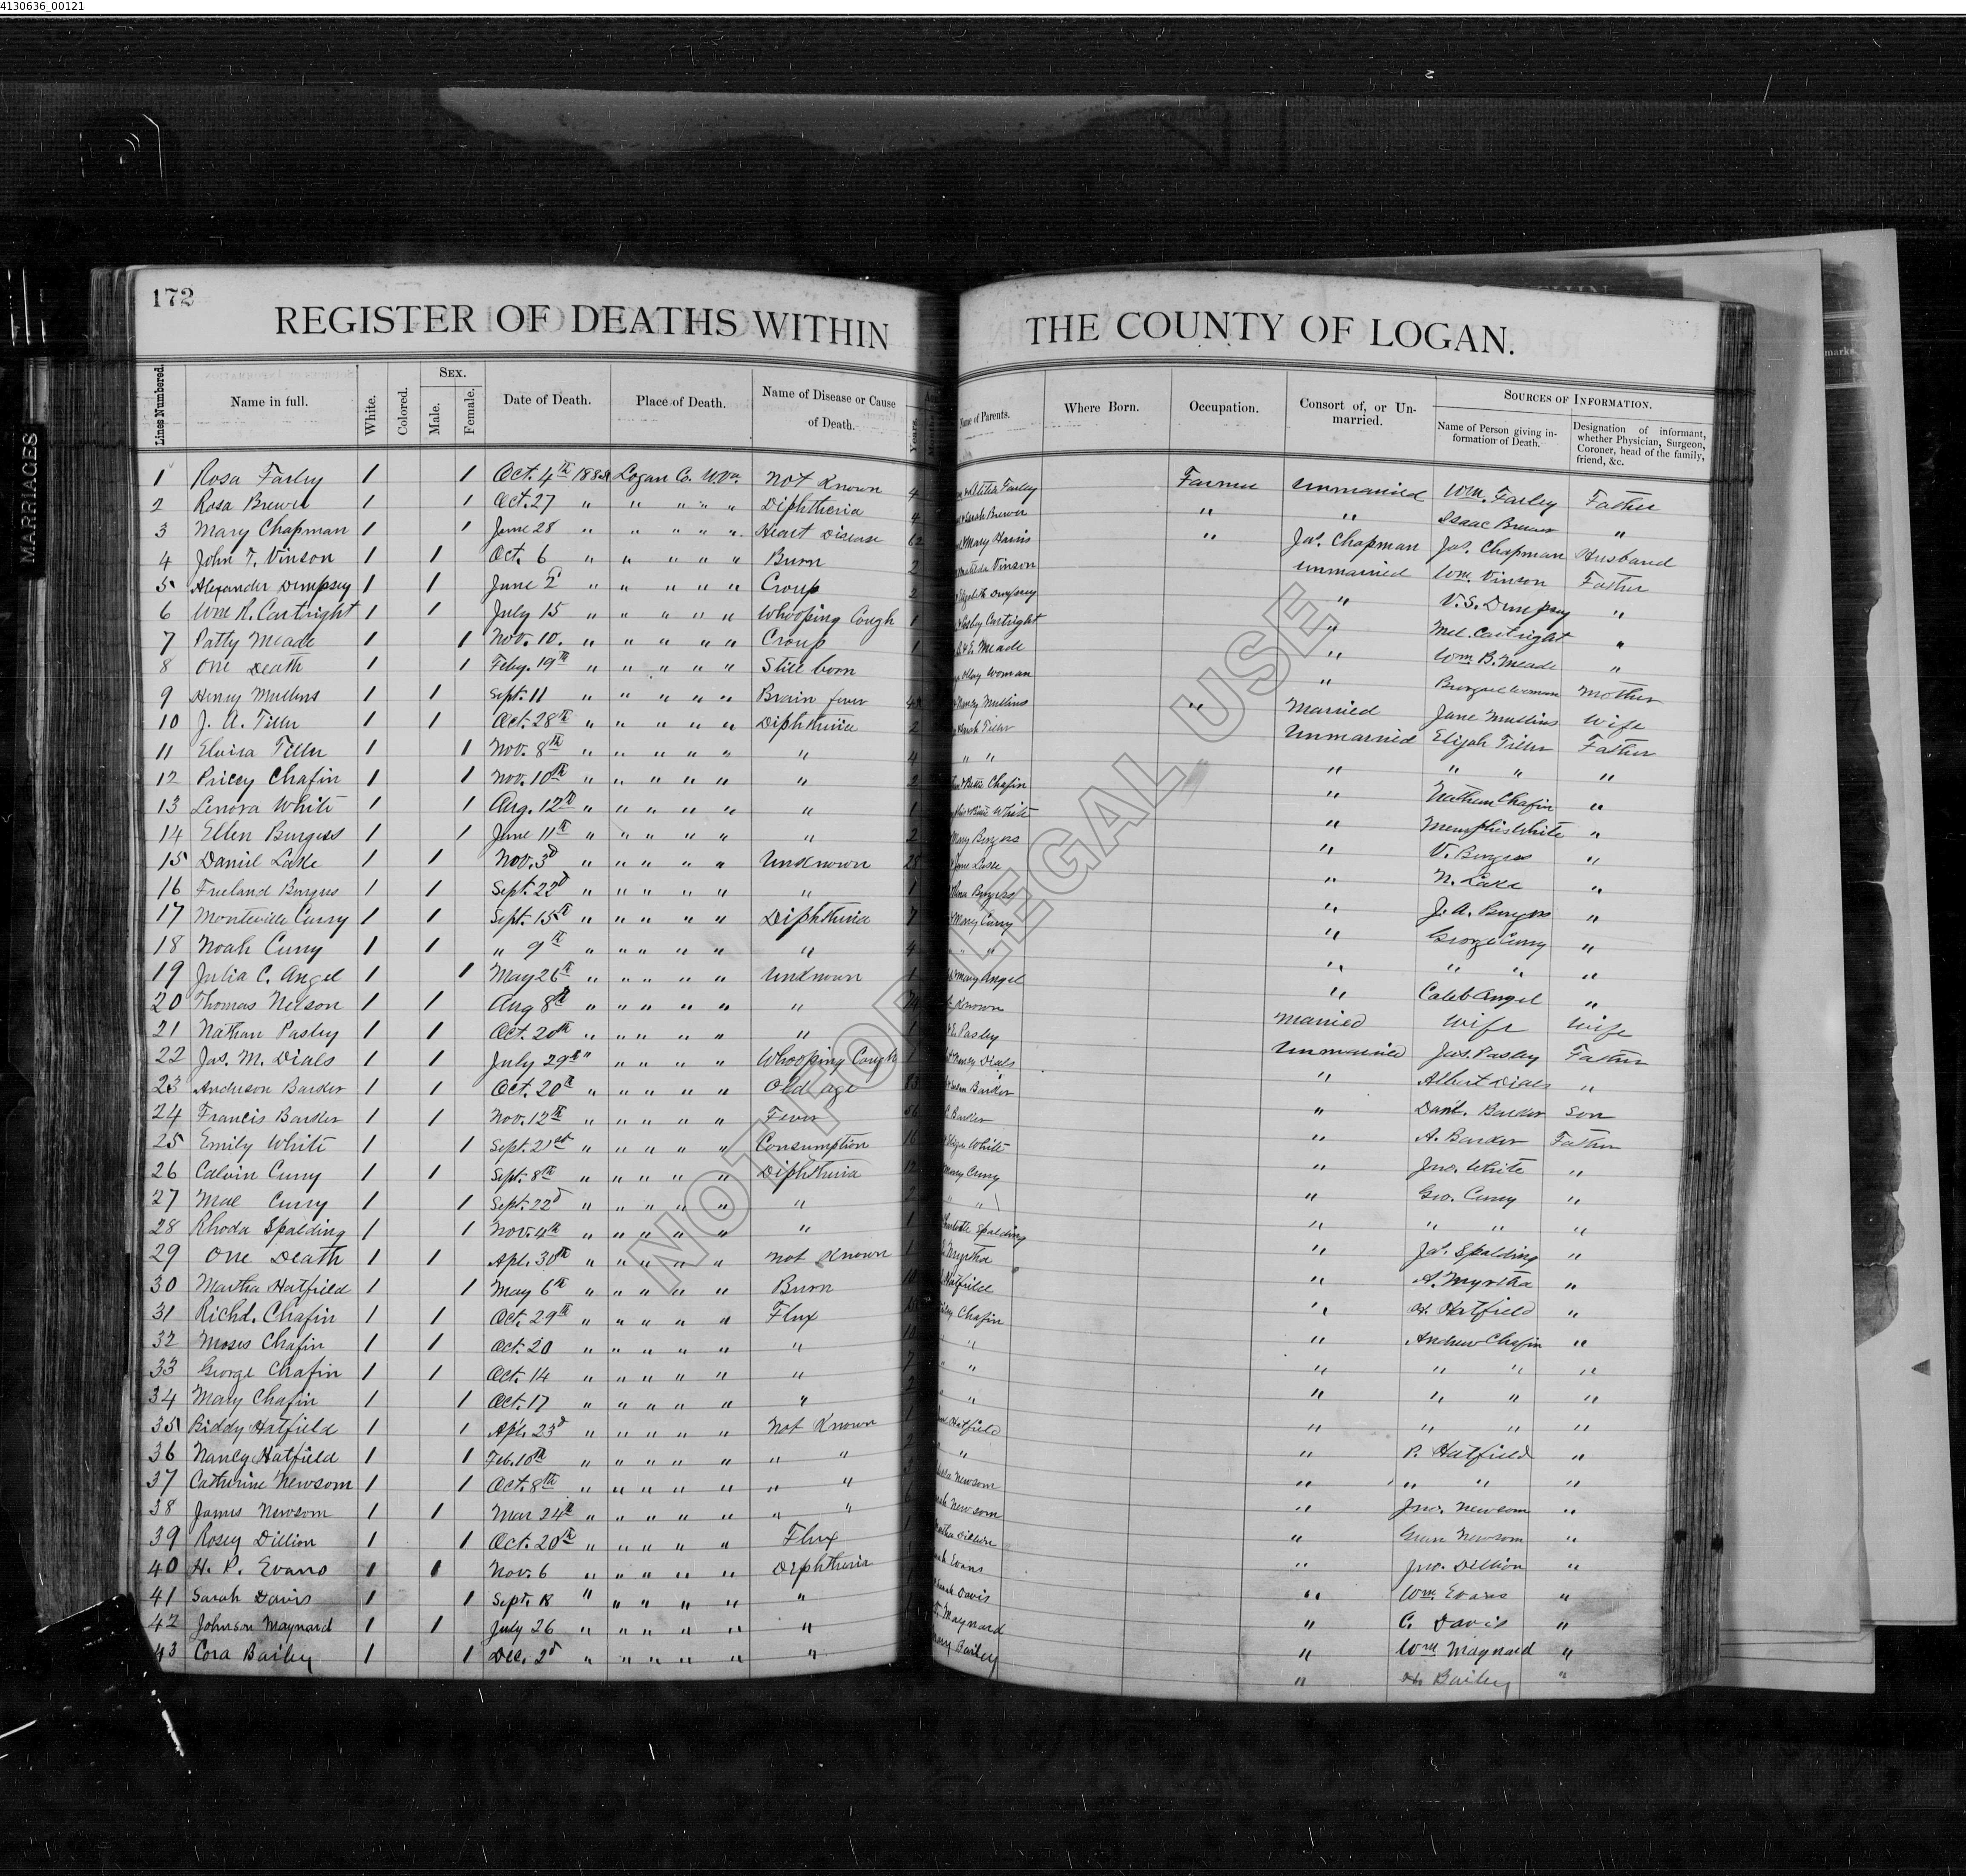 4130636_00121
MARRIAGES
172
REGISTER OF DEATHS WITHIN THE COUNTY OF LOGAN.
Lines Numbered. Name in full. White. Colored. Sex. Male. Female. Date of Death. Place of Death. Name of Disease or Cause of Death. Years. Name of Parents. Where Born. Occupation. Consort of, or Unmarried. Sources of Information. Name of Person giving information of Death. Designation of informant, whether Physician, Surgeon, Coroner, head of the family, friend, &c.
1 Rosa Farley 1 1 Oct. 4th Logan Co. W.Va. Not Known 4 Farley Farmer Unmarried Wm. Farley Father
2 Rosa Brewer 1 1 Oct. 27 " " " " " Diphtheria 4 Sarah Brewer " " Isaac Brewer "
3 Mary Chapman 1 1 June 28 " " " " " Heart Disease 62 Mary Harris " Jas. Chapman Jas. Chapman Husband
4 John T. Vinson 1 1 Oct. 6 " " " " " Burn 2 Matilda Vinson Unmarried Wm. Vinson Father
5 Alexander Dempsey 1 1 June 2d " " " " " Croup 2 Elizabeth Dempsey " V.S. Dempsey "
6 Wm R. Cartright 1 1 July 15 " " " " " Whooping Cough 1 Cartright " Mel. Cartright "
7 Patty Meade 1 1 Nov. 10. " " " " " Croup 1 & E. Meade " Wm B. Meade "
8 One Death 1 1 Feby. 19th " " " " " Still born Woman " Woman Mother
9 Henry Mullins 1 1 Sept. 11 " " " " " Brain fever Nancy Mullins " Married Jane Mullins Wife
10 J. A. Tiller 1 1 Oct. 28th " " " " " Diphtheria 2 Tiller Unmarried Elijah Tiller Father
11 Eloisa Tiller 1 1 Nov. 8th " " " " " " 4 " " " " " "
12 Pricey Chafin 1 1 Nov. 10th " " " " " " 2 Chafin " Nathan Chafin "
13 Lenora White 1 1 Aug. 12th " " " " " " 1 White " Memphis White "
14 Ellen Burgess 1 1 June 11th " " " " " " 2 Mary Burgess " V. Burgess "
15 Daniel Lake 1 1 Nov. 3d " " " " " Unknown 25 Jane Lake " N. Lake "
16 Freeland Burgess 1 1 Sept. 22d " " " " " " 1 Burgess " J. A. Burgess "
17 Monteville Curry 1 1 Sept. 15th " " " " " Diphtheria 7 Mary Curry " George Curry "
18 Noah Curry 1 1 " 9th " " " " " " 4 " " " " " "
19 Julia C. Angel 1 1 May 26th " " " " " Unknown 1 Mary Angel " Caleb Angel "
20 Thomas Nelson 1 1 Aug 8th " " " " " " Known Married Wife Wife
21 Nathan Pasley 1 1 Oct. 20th " " " " " " 1 & E. Pasley Unmarried Jas. Pasley Father
22 Jas. M. Dials 1 1 July 29th " " " " " Whooping Cough 1 Nancy Dials " Albert Dials "
23 Anderson Barker 1 1 Oct. 20th " " " " " Old age 83 Barker " Danl. Barker Son
24 Francis Barker 1 1 Nov. 12th " " " " " Fever 56 Barker " A. Barker Father
25 Emily White 1 1 Sept. 21st " " " " " Consumption 16 White " Jno. White "
26 Calvin Curry 1 1 Sept. 8th " " " " " Diphtheria 12 Mary Curry " Geo. Curry "
27 Mae Curry 1 1 Sept. 22d " " " " " " 2 " " " " " "
28 Rhoda Spalding 1 1 Nov. 4th " " " " " " 1 Charlotte Spalding " Jas. Spalding "
29 One Death 1 1 Apl. 30th " " " " " Not Known 1 Myrtha " A. Myrtha "
30 Martha Hatfield 1 1 May 6th " " " " " Burn 10 Hatfield " Hatfield "
31 Richd. Chafin 1 1 Oct. 29th " " " " " Flux Chafin " Andrew Chafin "
32 Moses Chafin 1 1 Oct. 20 " " " " " " 10 " " " " "
33 George Chafin 1 1 Oct. 14 " " " " " " 7 " " " " "
34 Mary Chafin 1 1 Oct. 17 " " " " " " " " " " "
35 Biddy Hatfield 1 1 Apl. 23d " " " " " Not Known Hatfield " P. Hatfield "
36 Nancy Hatfield 1 1 Feb. 10th " " " " " " " " " " " "
37 Catherine Newsom 1 1 Oct. 8th " " " " " " " Newsom " Jno. Newsom "
38 James Newsom 1 1 Mar 24th " " " " " " " Newsom " Green Newsom "
39 Rosey Dillion 1 1 Oct. 20th " " " " " Flux Martha Dillion " Jno. Dillion "
40 H. P. Evans 1 1 Nov. 6 " " " " " Diphtheria Evans " Wm. Evans "
41 Sarah Davis 1 1 Sept. 18 " " " " " " Sarah Davis " C. Davis "
42 Johnson Maynard 1 1 July 26 " " " " " " Maynard " Wm Maynard "
43 Cora Bailey 1 1 Dec. 2d " " " " " " Mary Bailey " Bailey "
NOT FOR LEGAL USE